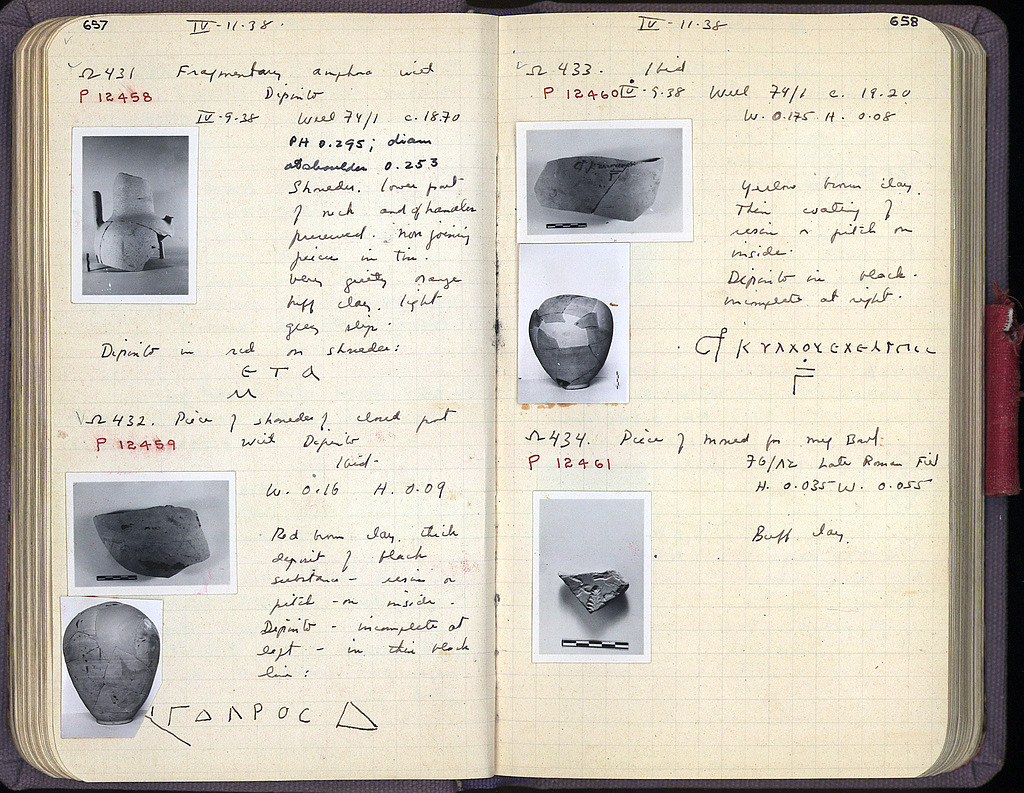 657
IV-11-38.
Ω 431 Fragmentary amphora with
P 12458 Dipinto
IV-9-38 Well 74/1 c. 18.70
PH 0.295; diam
at shoulder 0.253
Shoulder. lower part
of neck and of handles
preserved. Non joining
pieces in tin.
Very gritty orange
buff clay. light
grey slip.
Dipinto in red on shoulder:
Ε Τ Α
Μ
Ω 432. Piece of shoulder of closed pot
P 12459 with Dipinto
Ibid-
W. 0.16 H. 0.09
Red brown clay. thick
deposit of black
substance - resin or
pitch - on inside.
Dipinto - incomplete at
left - in thin black
line:
658
IV-11-38
Ω 433. Ibid
P 12460 IV-9-38 Well 74/1 c. 19.20
W. 0.175 H. 0.08
Yellow brown clay.
Thin coating of
resin or pitch on
inside.
Dipinto in black.
incomplete at right.
Ω 434. Piece of mould for
P 12461 76/ΛΖ Late Roman Fill
H. 0.035 W. 0.055
Buff clay.